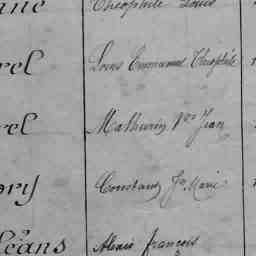 Théophile Louis
rel Louis Emmanuel Théophile
rel Mathurin Jean
ory Constant Marie
léans Alexis françois